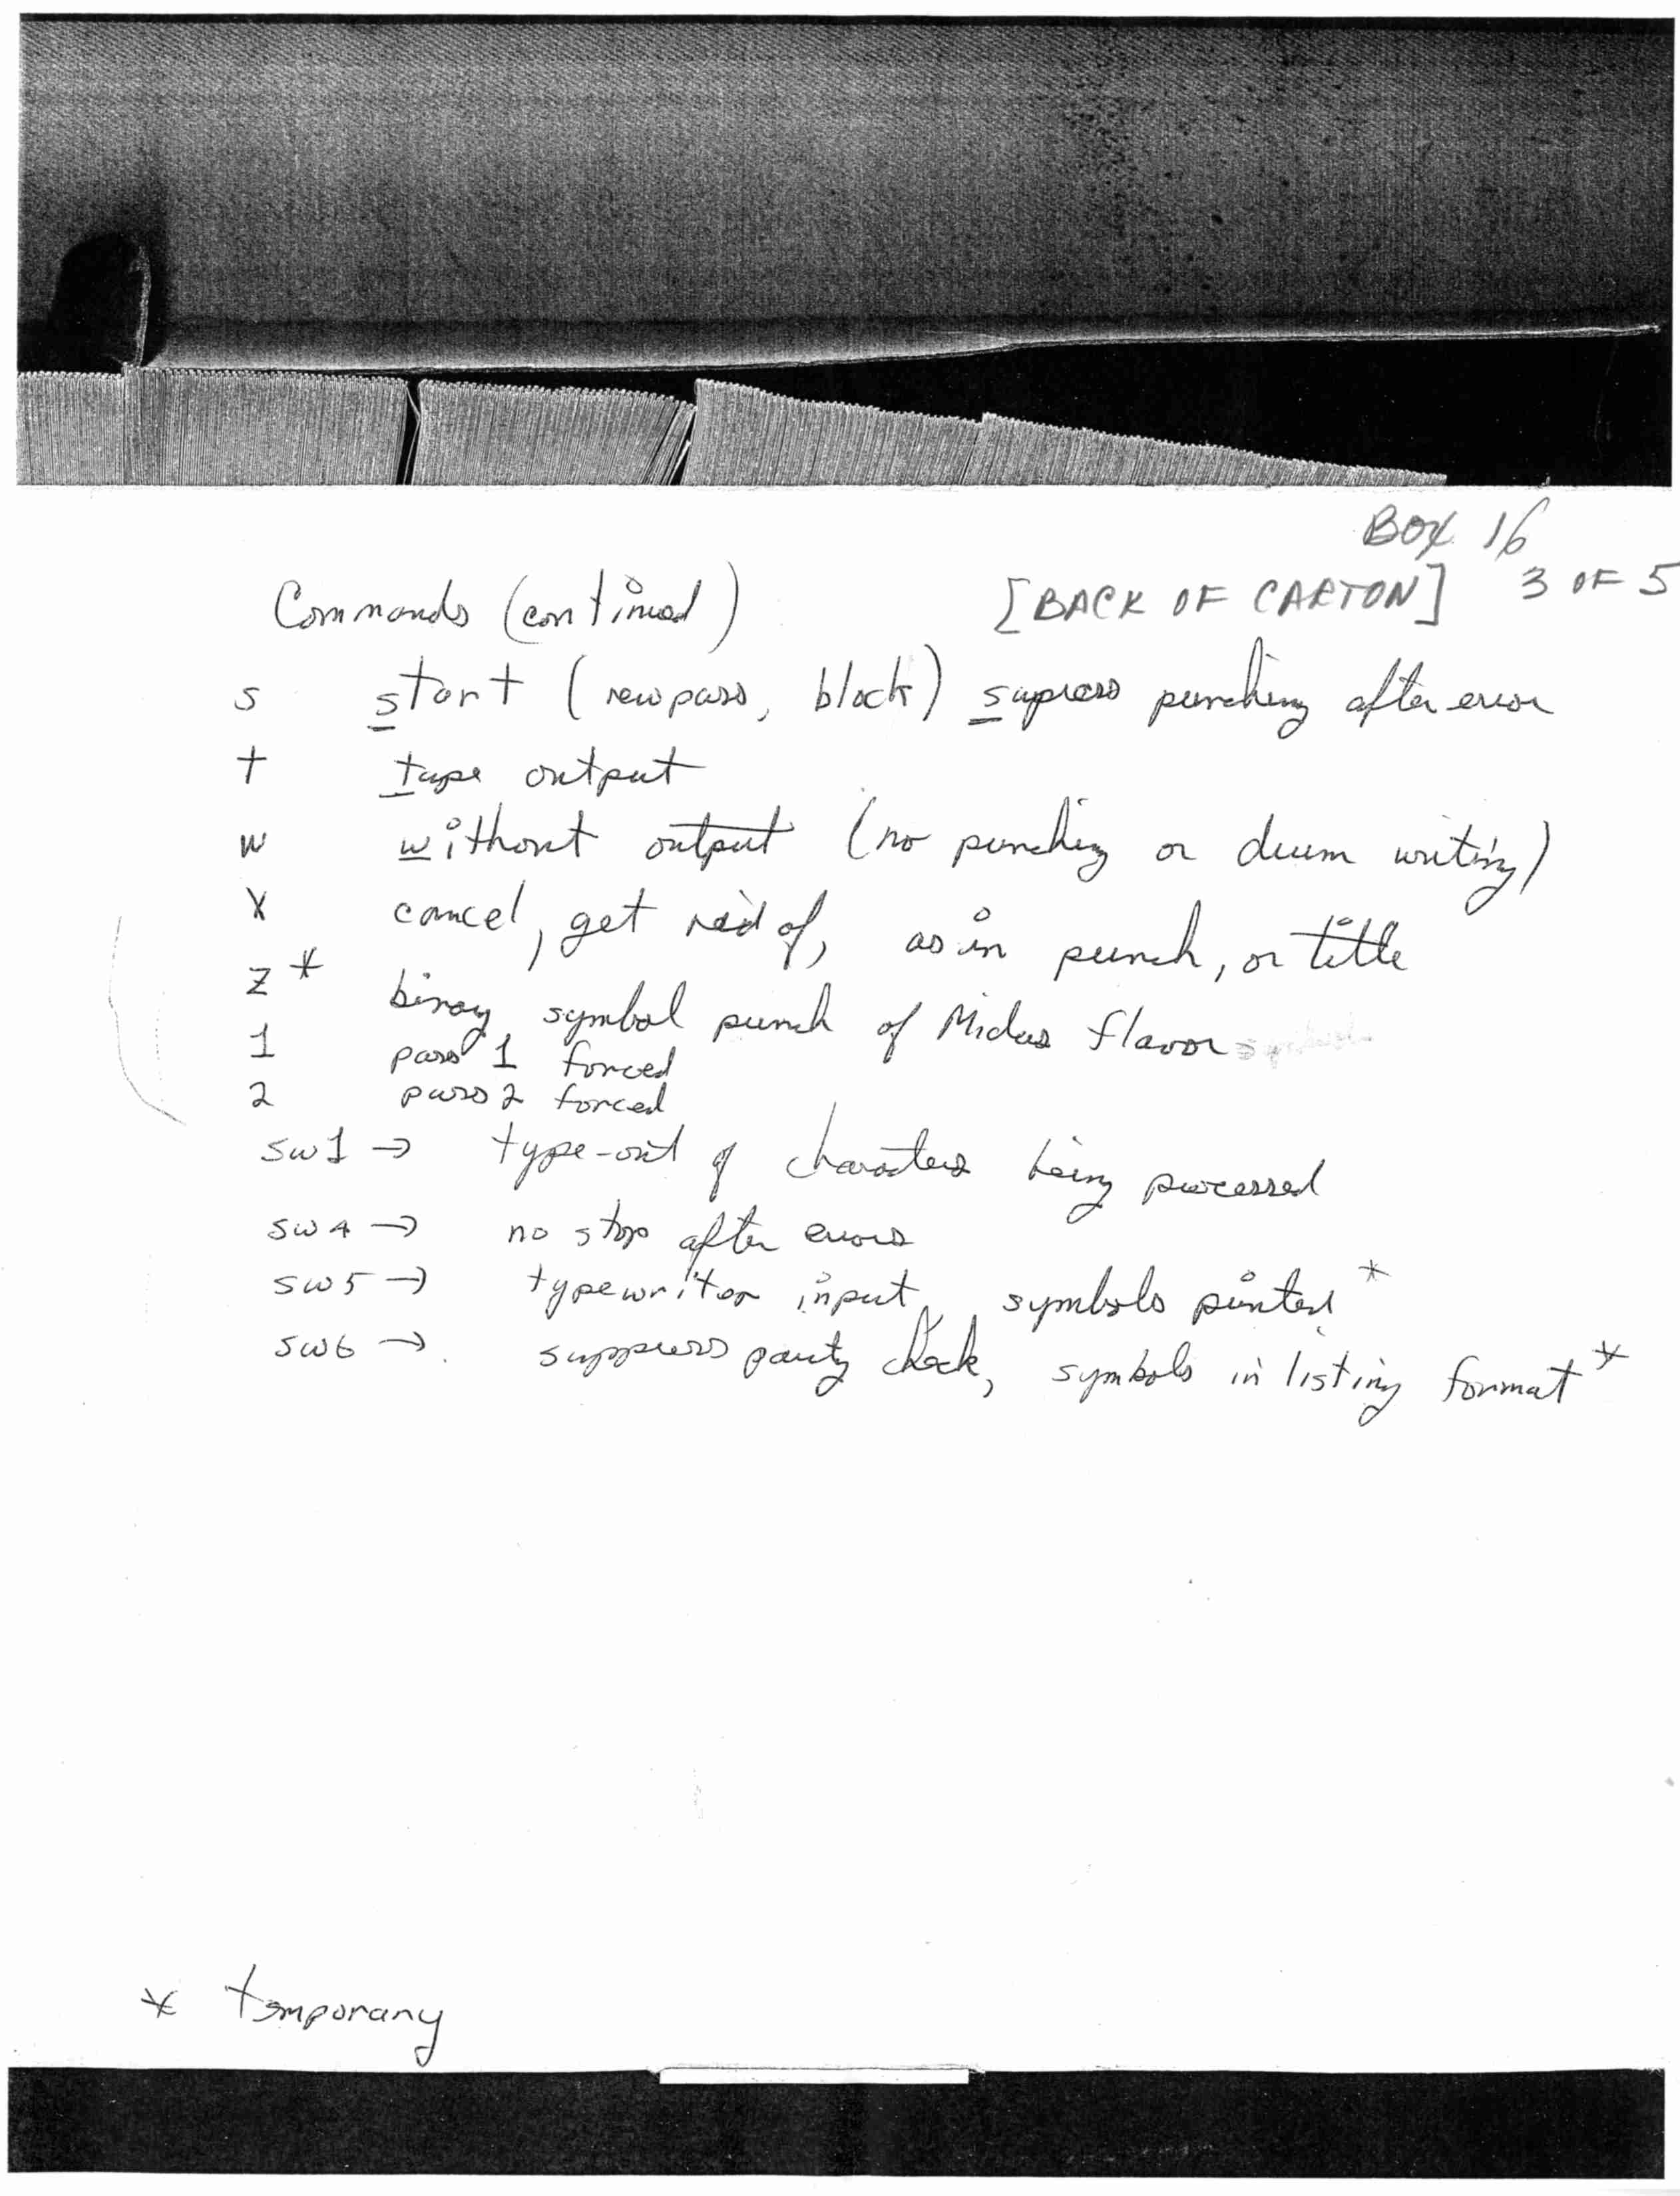 BOX 16
Commands (continued) [BACK OF CARTON] 3 OF 5
s start (new pass, block) supress punching after error
t tape output
w without output (no punching or drum writing)
x cancel, get rid of, as in punch, or title
z * binary symbol punch of Midas flavor
1 pass 1 forced
2 pass 2 forced
sw1 → type-out of characters being processed
sw4 → no stop after errors
sw5 → typewriter input, symbols printed *
sw6 → suppress parity check, symbols in listing format *
* temporary